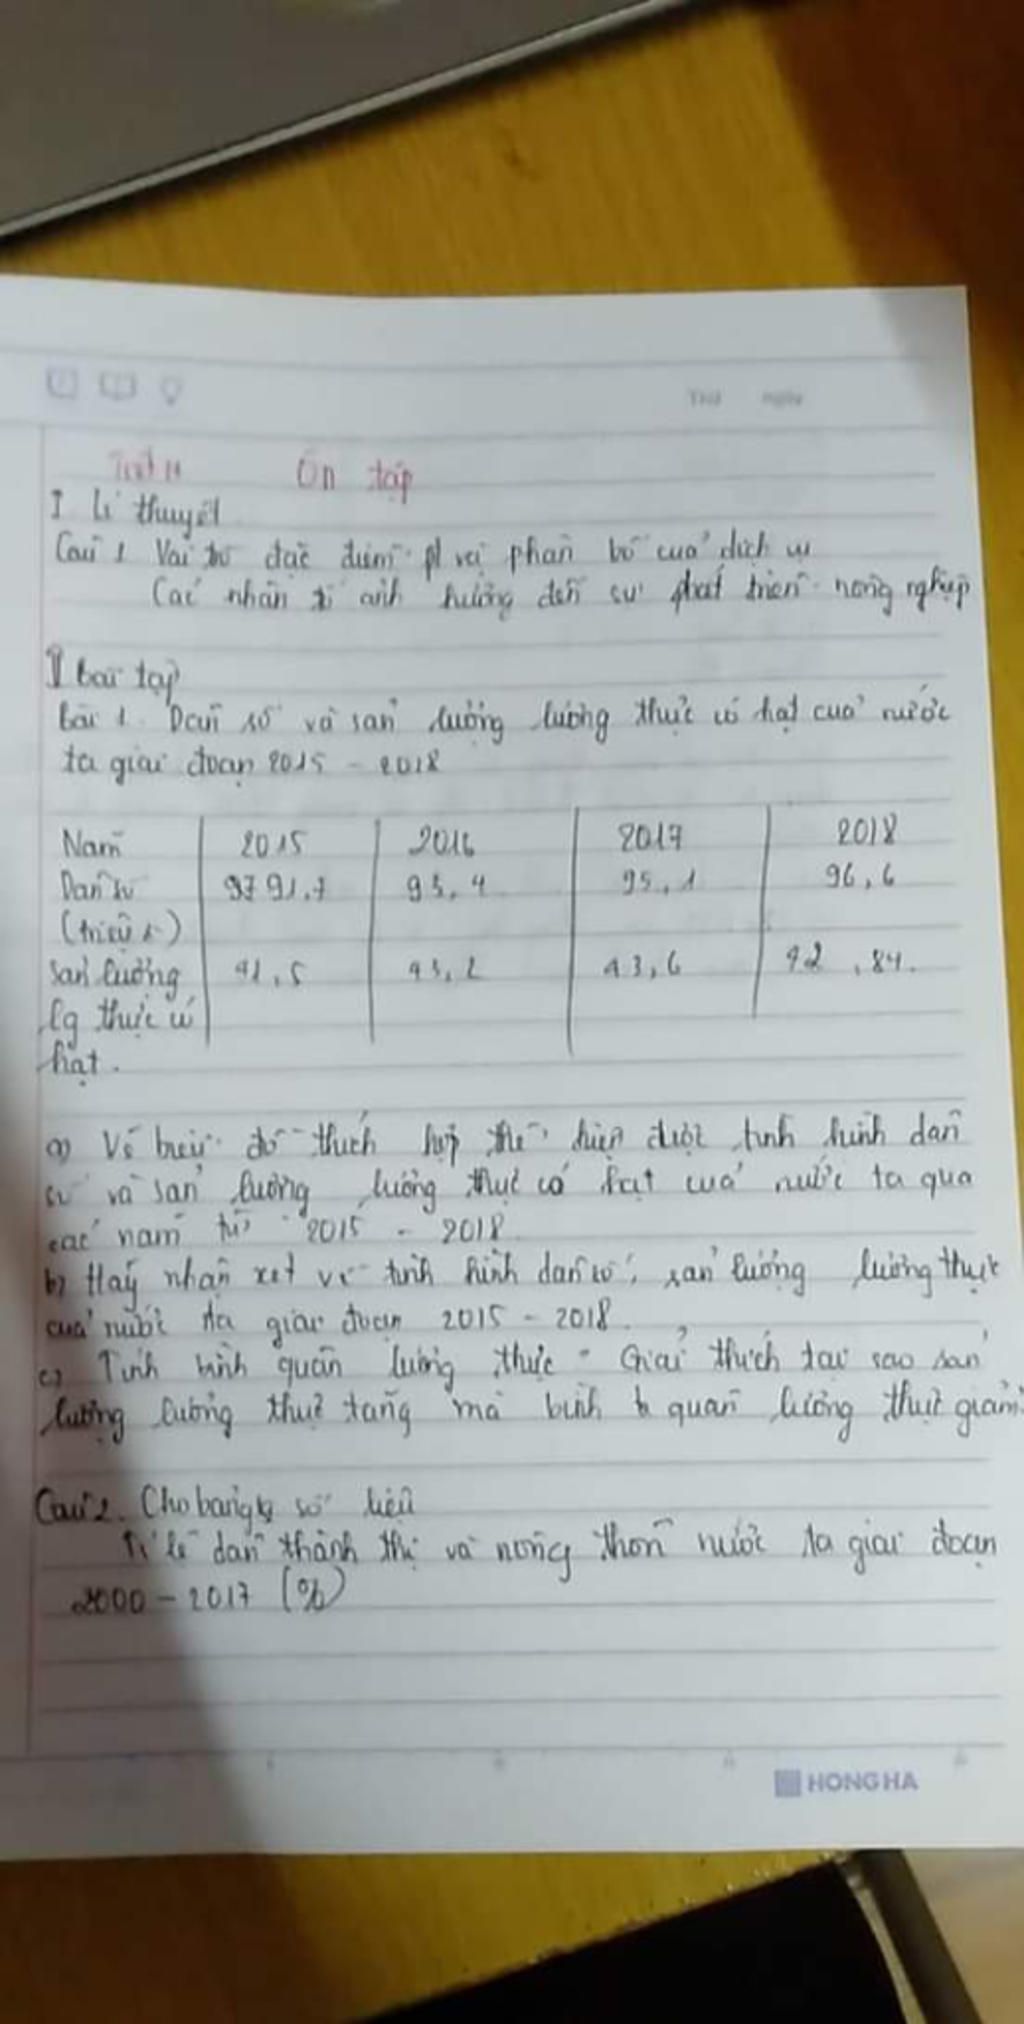 Ôn tập
I Lí thuyết
Câu 1 Vai trò đặc điểm pt và phân bố của dịch vụ
Các nhân tố ảnh hưởng đến sự phát triển nông nghiệp
II bài tập
Bài 1. Dân số và sản lượng lương thực có hạt của nước
ta giai đoạn 2015 - 2018
Năm 2015 2016 2017 2018
Dân số 91,7 93,4 95,1 96,6
(triệu )
Sản lượng 41,5 43,2 43,6 42,84.
lg thực có
hạt.
a) Vẽ biểu đồ thích hợp thể hiện được tình hình dân
số và sản lượng lương thực có hạt của nước ta qua
các năm từ 2015 - 2018
b) Hãy nhận xét về tình hình dân số, sản lượng lương thực
của nước ta giai đoạn 2015 - 2018.
c) Tính bình quân lương thực. Giải thích tại sao sản
lượng lương thực tăng mà bình quân lương thực giảm
Câu 2. Cho bảng số liệu
Tỉ lệ dân thành thị và nông thôn nước ta giai đoạn
2000 - 2017 (%)
HONG HA